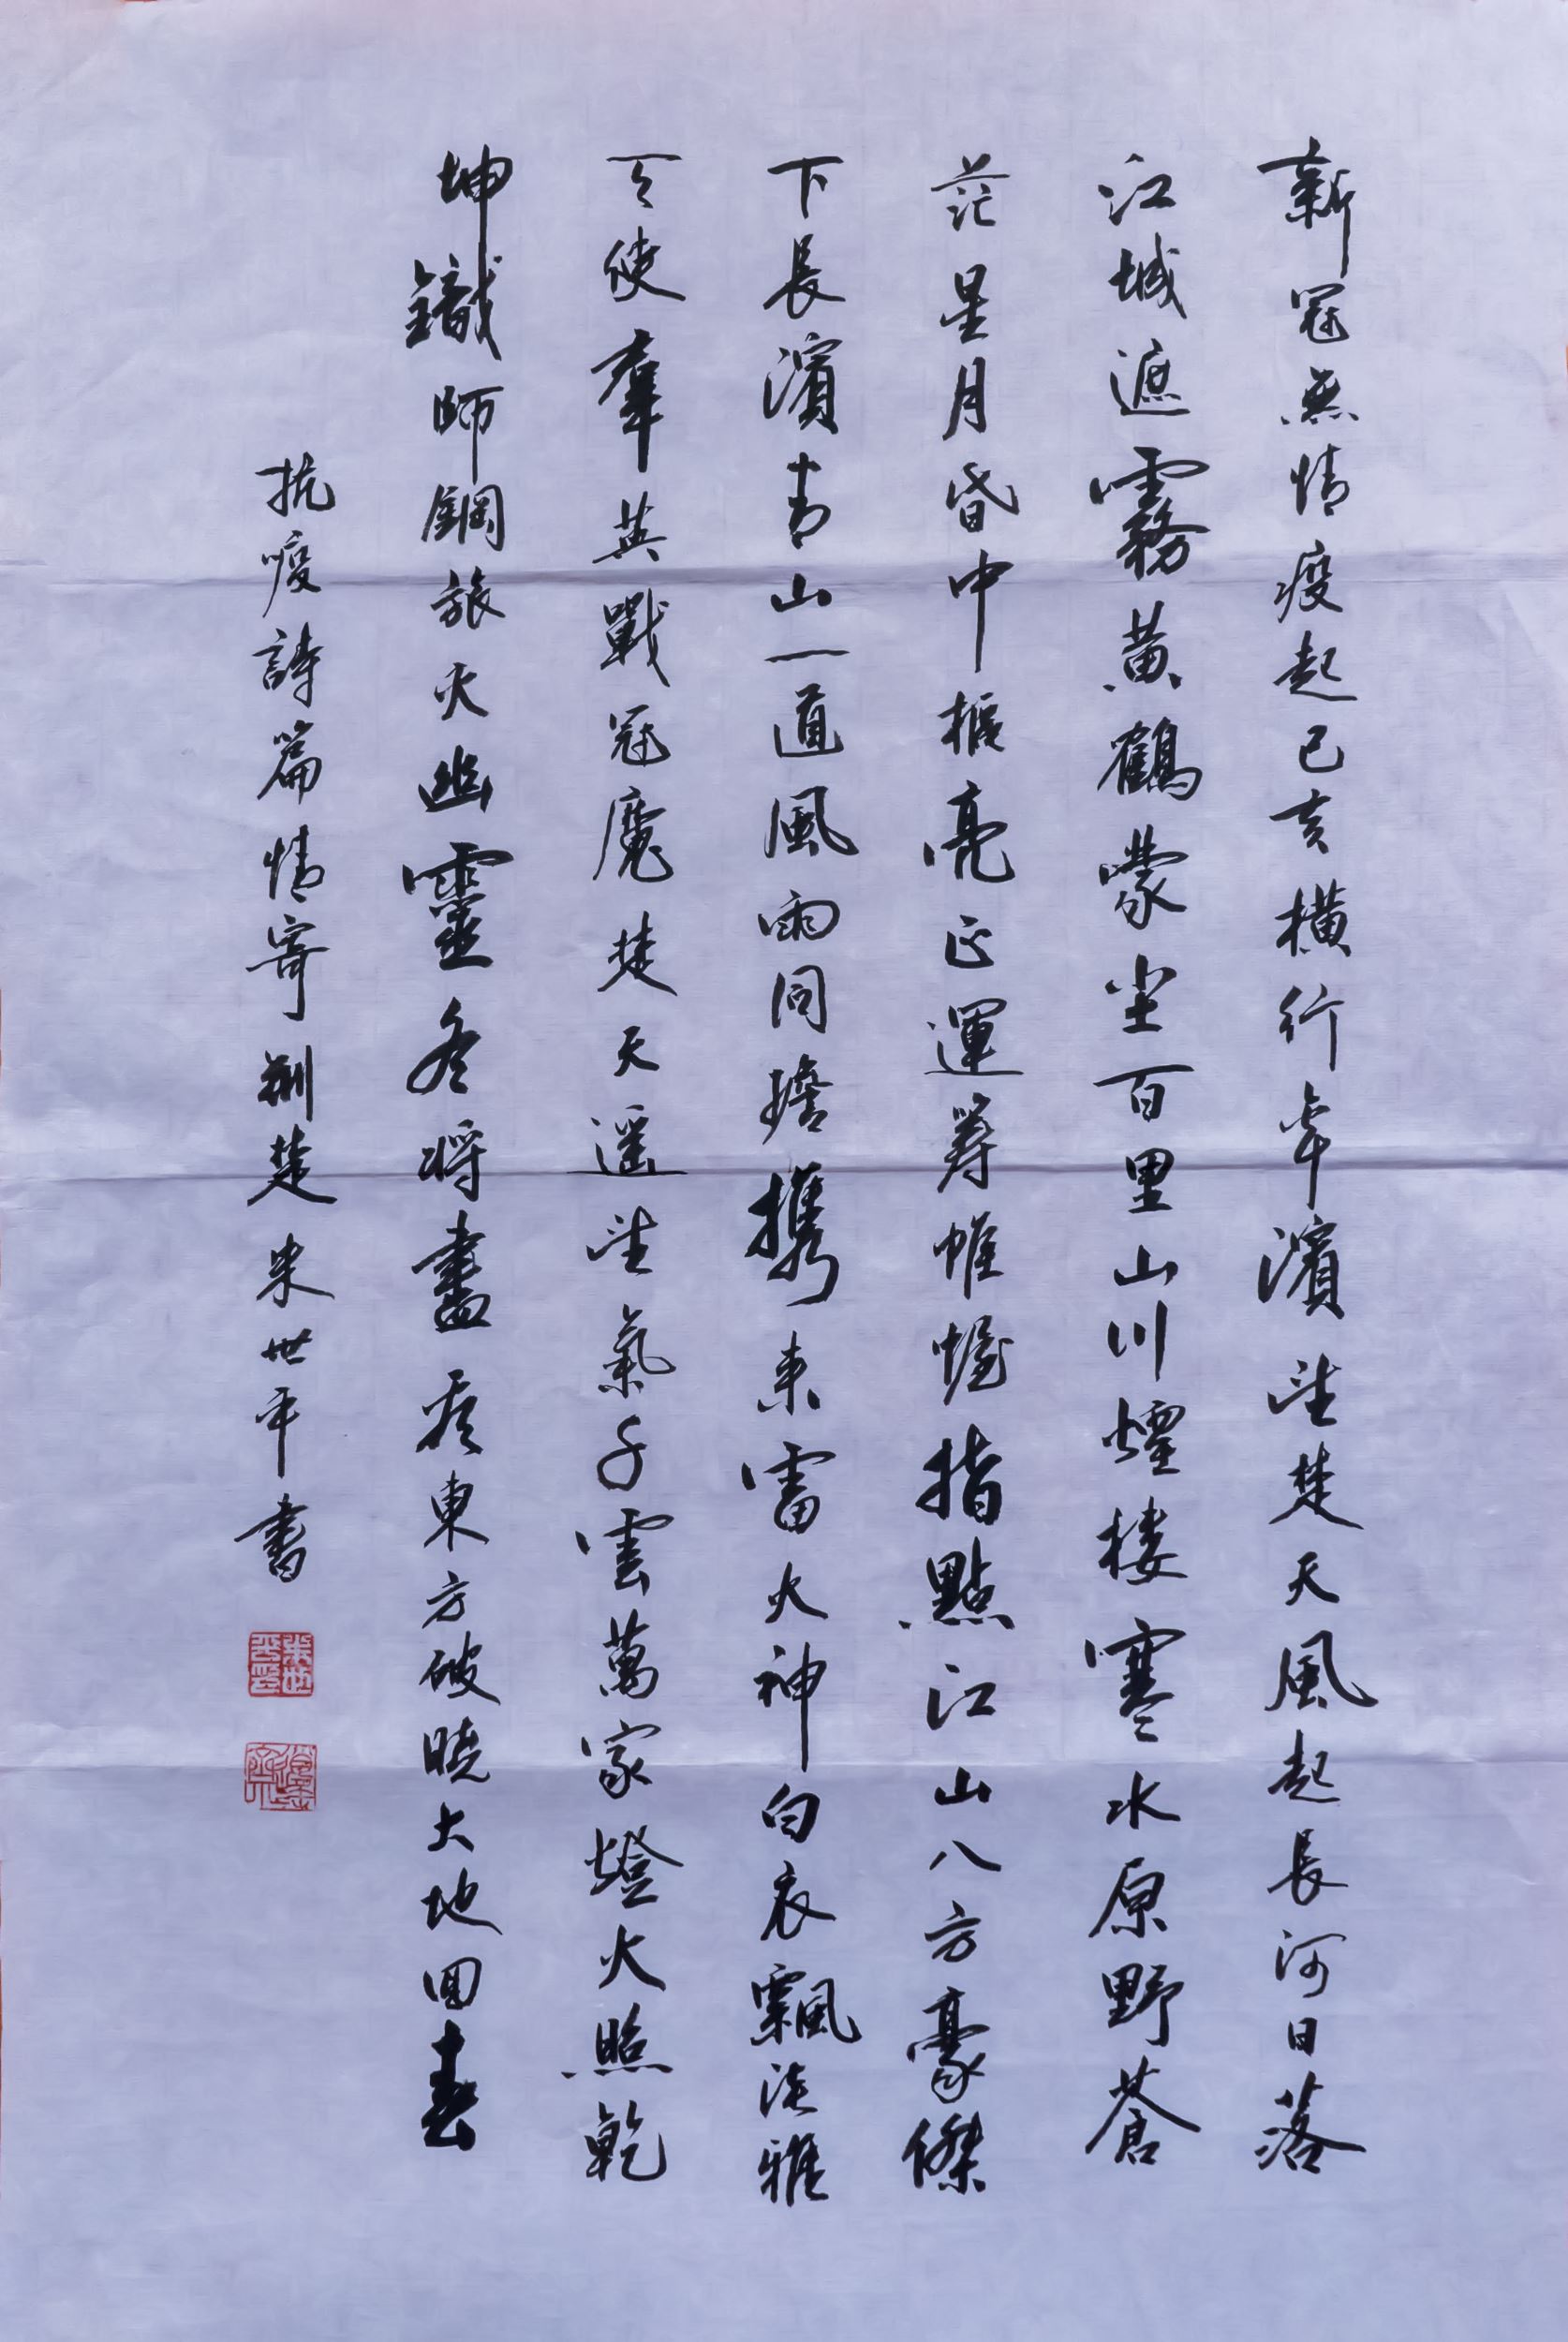 新冠無情疫起己亥橫行幸濱望楚天風起長河日落
江城遮霧黄鶴蒙尘百里山川煙楼寒水原野蒼
茫星月昏中樞亮正運筹帷幄指點江山八方豪傑
下長濱青山一道風雨同擔携来雷火神白衣飄淡雅
天使羣英戰冠魔楚天遥望氣千雲萬家燈火照乾
坤鐵師鋼旅火幽靈冬將盡看東方破曉大地回春
抗疫詩篇情寄荆楚朱世平書
朱世平印